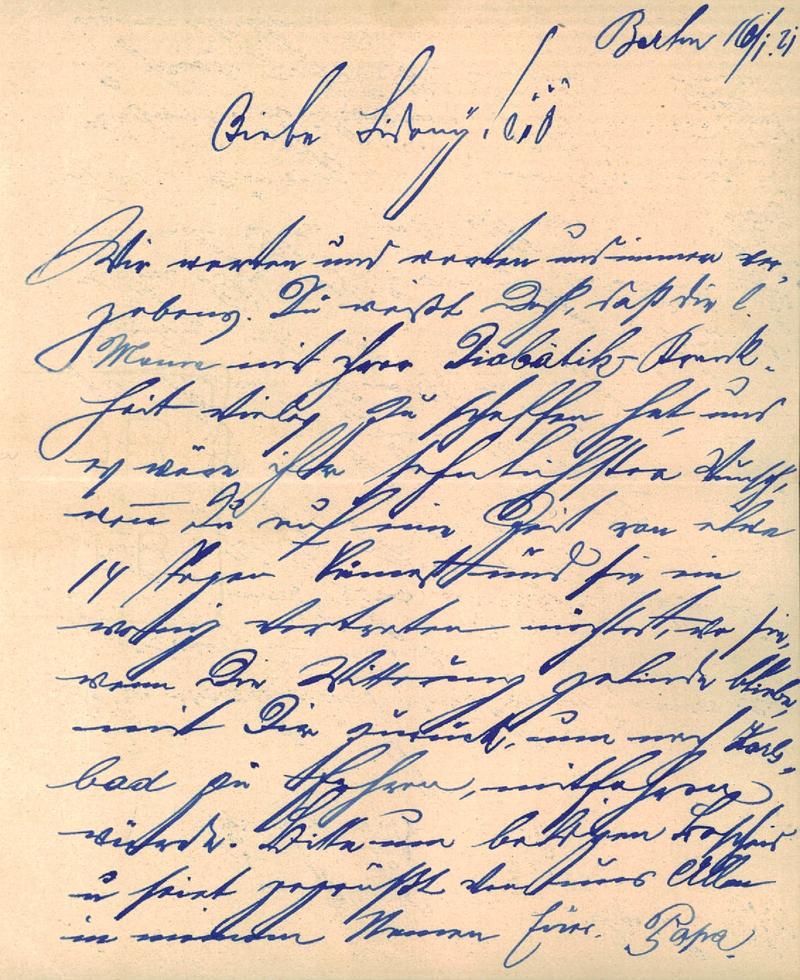 Berlin 16/1. 21
Liebe Sidony!
Wir warten und warten und immer ver-
gebens. Du weißt doch, daß die l.
Mama mit ihrer Diabetik-Krank-
heit vieles zu schaffen hat, und
es wäre ihr sehnlichster Wunsch,
wenn Du auf eine Zeit von etwa
14 Tagen kämest und sie ein
wenig vertreten möchtest, wo sie,
wenn die Witterung gelinde bliebe,
mit Dir zurück, um nach Karls-
bad zu fahren, mitfahren
würde. Bitte um baldigen Bescheid
u seiet gegrüßt von uns Allen
in meinem Namen Euer Papa.